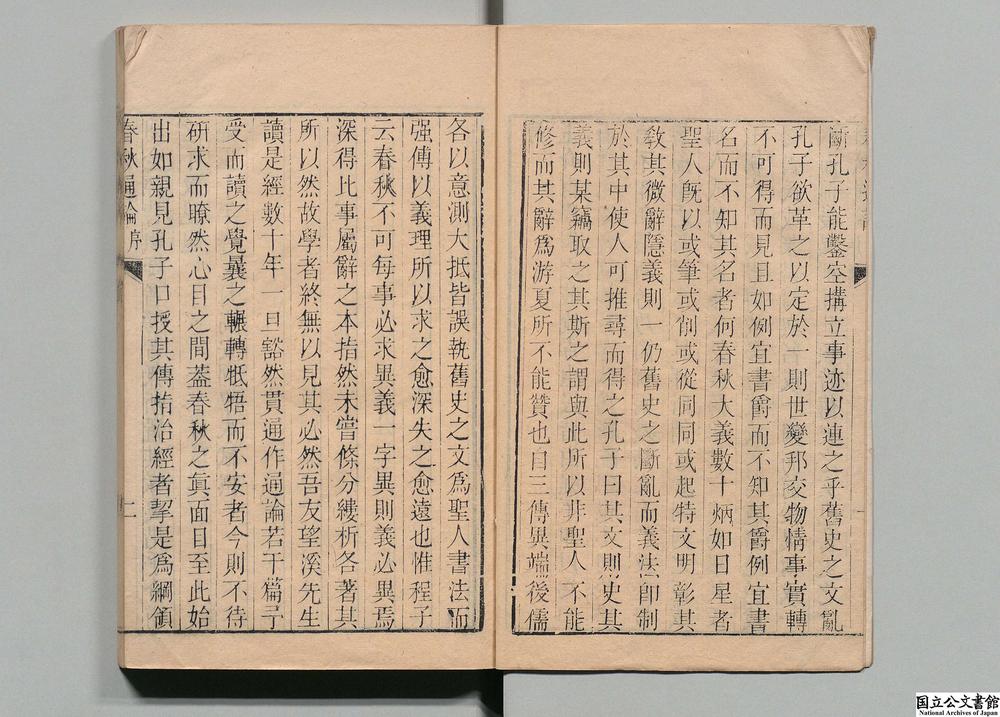 斷孔子能鑿空搆立事迹以連之乎舊史之文亂
孔子欲革之以定於一則世變邦交物情事實轉
不可得而見且如例宜書爵而不知其爵例宜書
名而不知其名者何春秋大義數十炳如日星者
聖人旣以或筆或削或從同同或起特文明彰其
敎其微辭隱義則一仍舊史之斷亂而義法卽制
於其中使人可推尋而得之孔子曰其文則史其
義則某竊取之其斯之謂與此所以非聖人不能
修而其辭爲游夏所不能贊也曰三傳異端後儒
各以意測大抵皆誤執舊史之文爲聖人書法而
强傅以義理所以求之愈深失之愈遠也惟程子
云春秋不可每事必求異義一字異則義必異焉
深得比事屬辭之本指然未嘗條分縷析各著其
所以然故學者終無以見其必然吾友望溪先生
讀是經數十年一旦豁然貫通作通論若干篇予
受而讀之覺曩之輾轉牴牾而不安者今則不待
研求而瞭然心目之間葢春秋之眞面目至此始
出如親見孔子口授其傳指治經者挈是爲綱領
春秋通論 序 二
国立公文書館
National Archives of Japan